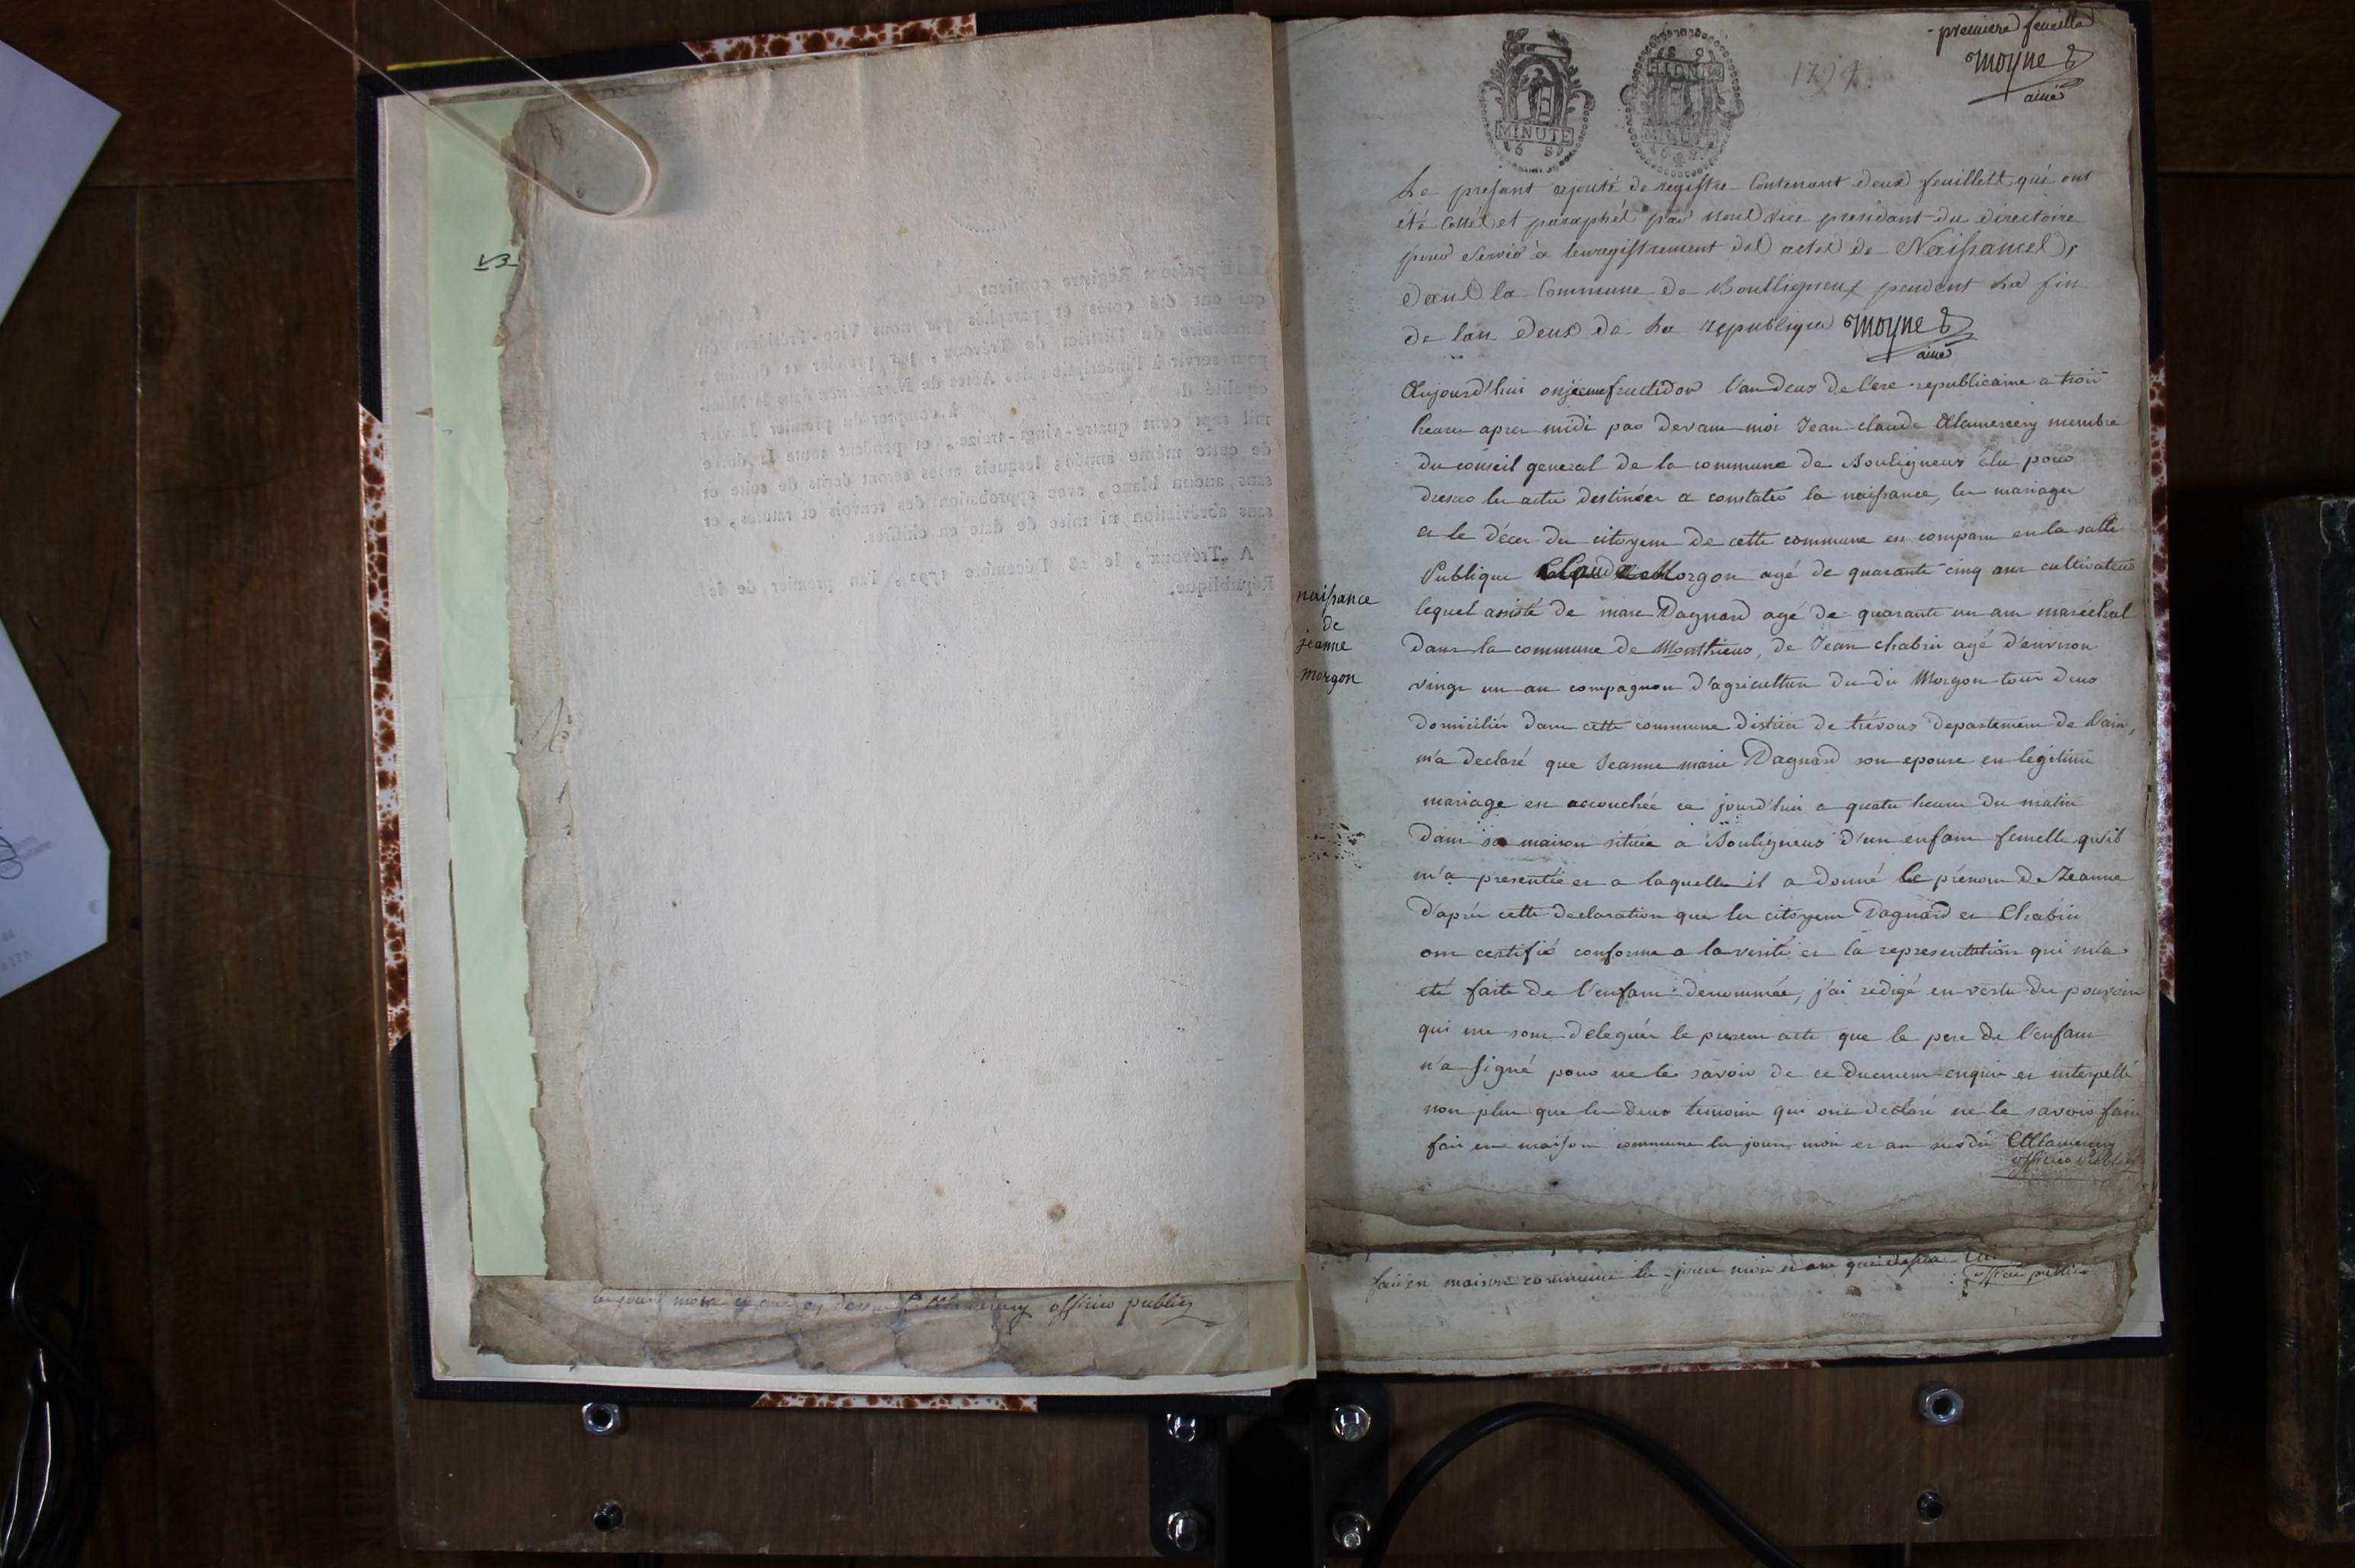 premiere feuille
Moyne
ainé
1794.
MINUTE
MINUTE
Le present ajouté de registre Contenant deux feuillets qui ont
été Cottés et paraphés par nous vice president du directoire
pour servir à lenregistrement des actes de Naissances,
dans la Commune de Boulligneux pendent la fin
de lan deux de la republique Moyne
ainé
Aujourd'hui onzieme fructidor l'an deux de l'ere republicaine a trois
heures apres midi par devant moi Jean claude Alamercery membre
du conseil general de la commune de Bouligneux élu pour
dresser les actes destinées a constater la naissance, les mariages
et le décès des citoyens de cette commune est comparu en la salle
Publique Claude Morgon agé de quarante cinq ans cultivateur
lequel assisté de marc Dagnard agé de quarante un ans maréchal
dans la commune de Monthieux, de Jean chabrier agé d'environ
vingt un an compagnon d'agriculture du dit Morgon tous deux
domiciliés dans cette commune district de trévoux departement de l'ain,
m'a declaré que Jeanne marie Dagnard son epouse en legitime
mariage est accouchée ce jourd'hui a quatre heures du matin
dans sa maison située a Bouligneux d'un enfant femelle qu'il
m'a presentée et a laquelle il a donné le prénom de Jeanne
d'après cette declaration que les citoyens Dagnard et Chabrier
ont certifié conforme a la verité et la representation qui m'a
été faite de l'enfant denommée, j'ai redigé en vertu des pouvoirs
qui me sont delegués le present acte que le pere de l'enfant
n'a signé pour ne le savoir de ce duement enquis et interpellé
non plus que les deux temoins qui ont declaré ne le savoir faire
fait en maison commune les jours mois et an susdit Alamercery
officier Public
naissance
de
jeanne
morgon
fait en maison commune les jours mois et an que dessus
officier public
les jours mois et an ci dessus Alamercery officier public
Le présent Régistre contient
qui ont été cotés et paraphés par nous Vice-Président du
Directoire du District de Trévoux, par premier et dernier,
pour servir à l'inscription des Actes de Naissance dans la Muni-
cipalité d
à compter du premier Janvier
mil sept cent quatre-vingt-treize, et pendant toute la durée
de cette même année ; lesquels actes seront écrits de suite et
sans aucun blanc, avec approbation des renvois et ratures, et
sans abréviation ni mise de date en chiffres.
A Trévoux, le 28 Décembre 1792, l'an premier de la
République.